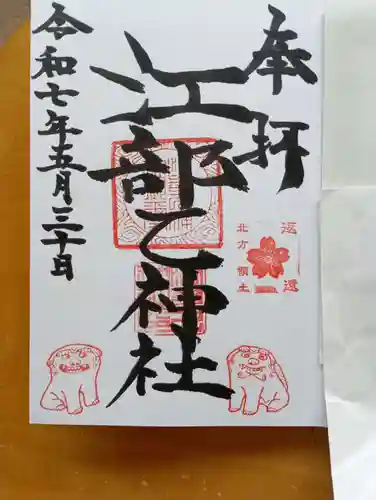 奉拝
江部乙神社
令和七年五月三十日
北方領土
返還